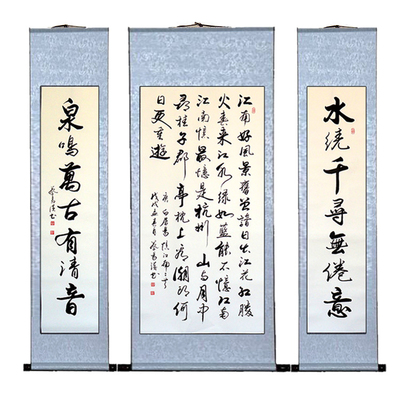 水繞千尋無倦意
江南好風景舊曾諳日出江花紅勝
火春來江水綠如藍能不憶江南
江南憶最憶是杭州山寺月中
尋桂子郡亭枕上看潮頭何
日更重遊
泉鳴萬古有清音